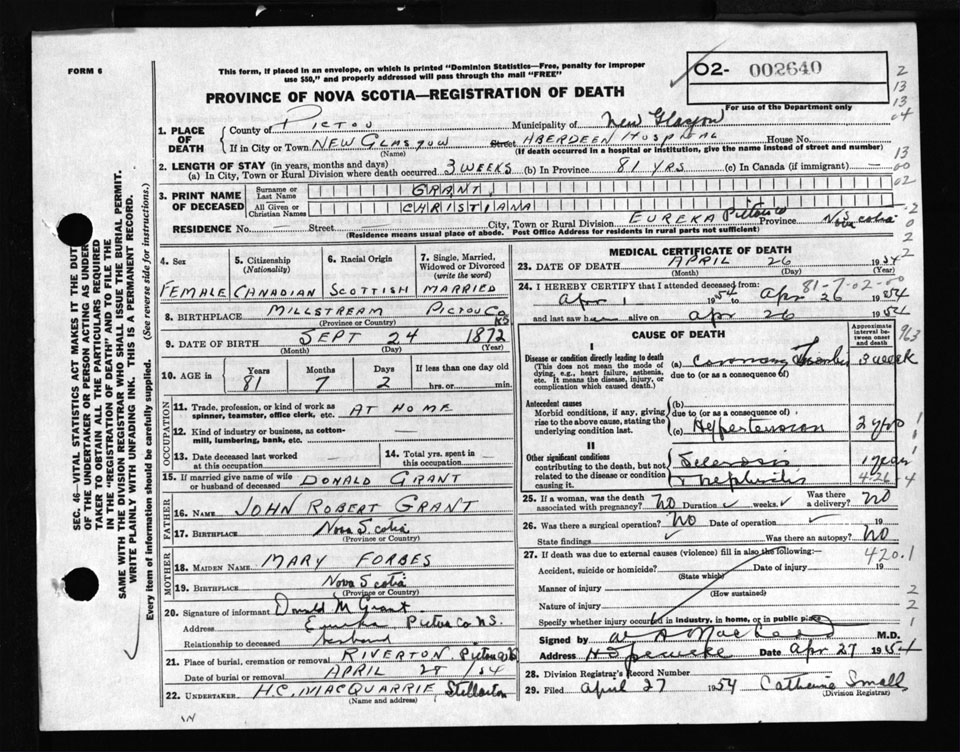 FORM 6
This form, if placed in an envelope, on which is printed "Dominion Statistics—Free, penalty for improper
use $50," and properly addressed will pass through the mail "FREE"
O2- 002640
For use of the Department only
PROVINCE OF NOVA SCOTIA—REGISTRATION OF DEATH
1. PLACE OF DEATH
County of PICTOU Municipality of New Glasgow
If in City or Town NEW GLASGOW Street ABERDEEN HOSPITAL House No.
(Name) (If death occurred in a hospital or institution, give the name instead of street and number)
2. LENGTH OF STAY (in years, months and days)
(a) In City, Town or Rural Division where death occurred 3 WEEKS (b) In Province 81 YRS (c) In Canada (if immigrant) —
3. PRINT NAME OF DECEASED
Surname or Last Name GRANT
All Given or Christian Names CHRISTIANA
RESIDENCE No. — Street City, Town or Rural Division EUREKA Pictou Co Province Nova Scotia
(Residence means usual place of abode. Post Office Address for residents in rural parts not sufficient)
4. Sex
FEMALE
5. Citizenship
(Nationality)
CANADIAN
6. Racial Origin
SCOTTISH
7. Single, Married,
Widowed or Divorced
(write the word)
MARRIED
8. BIRTHPLACE MILLSTREAM PICTOU Co NS
(Province or Country)
9. DATE OF BIRTH SEPT 24 1872
(Month) (Day) (Year)
10. AGE in
Years Months Days If less than one day old
81 7 2 hrs. or min.
OCCUPATION
11. Trade, profession, or kind of work as
spinner, teamster, office clerk, etc. AT HOME
12. Kind of industry or business, as cotton-
mill, lumbering, bank, etc. —
13. Date deceased last worked
at this occupation —
14. Total yrs. spent in
this occupation —
15. If married give name of wife
or husband of deceased DONALD GRANT
FATHER
16. NAME JOHN ROBERT GRANT
17. BIRTHPLACE Nova Scotia
(Province or Country)
MOTHER
18. MAIDEN NAME MARY FORBES
19. BIRTHPLACE Nova Scotia
(Province or Country)
20. Signature of informant Donald M Grant
Address Eureka Pictou Co N.S.
Relationship to deceased husband
21. Place of burial, cremation or removal RIVERTON Pictou Co NS
Date of burial or removal APRIL 28/54
22. UNDERTAKER H.C. MACQUARRIE Stellarton
(Name and address)
MEDICAL CERTIFICATE OF DEATH
23. DATE OF DEATH APRIL 26 1954
(Month) (Day) (Year)
81-7-02-
24. I HEREBY CERTIFY that I attended deceased from:
Apr 1 1954 to Apr 26 1954
and last saw her alive on Apr 26 1954
CAUSE OF DEATH
Approximate
interval be-
tween onset
and death
I
Disease or condition directly leading to death
(This does not mean the mode of
dying, e.g., heart failure, asthenia,
etc. It means the disease, injury, or
complication which caused death.)
(a) Coronary Thrombosis 3 weeks
due to (or as a consequence of)
Antecedent causes
Morbid conditions, if any, giving
rise to the above cause, stating the
underlying condition last.
(b)
due to (or as a consequence of)
(c) Hypertension 2 yrs
II
Other significant conditions
contributing to the death, but not
related to the disease or condition
causing it.
Sclerosis 1 year
Nephritis
4-26-4
25. If a woman, was the death
associated with pregnancy? NO Duration weeks Was there
a delivery? NO
26. Was there a surgical operation? NO Date of operation 19
State findings Was there an autopsy? NO
27. If death was due to external causes (violence) fill in also the following:—
420.1
Accident, suicide or homicide? Date of injury 19
(State which)
Manner of injury
(How sustained)
Nature of injury
Specify whether injury occurred in industry, in home, or in public place
Signed by W A MacLeod M.D.
Address Date Apr 27 1954
28. Division Registrar's Record Number
29. Filed April 27 1954 Catherine Small
(Division Registrar)
SEC. 46—VITAL STATISTICS ACT MAKES IT THE DUTY
OF THE UNDERTAKER OR PERSON ACTING AS UNDER-
TAKER TO OBTAIN ALL THE PARTICULARS REQUIRED
IN THE "REGISTRATION OF DEATH" AND TO FILE THE
SAME WITH THE DIVISION REGISTRAR WHO SHALL ISSUE THE BURIAL PERMIT.
WRITE PLAINLY WITH UNFADING INK. THIS IS A PERMANENT RECORD.
Every item of information should be carefully supplied. (See reverse side for instructions.)